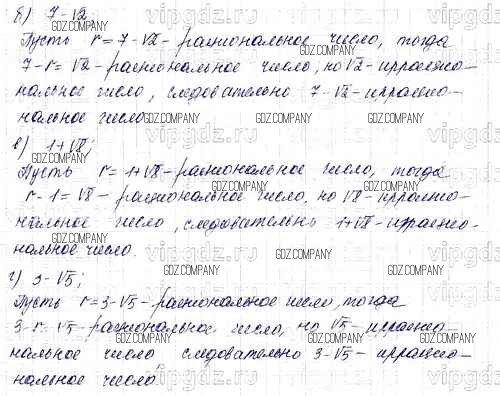 б) 7-√2;
Пусть r = 7-√2 - рациональное число, тогда
7-r = √2 - рациональное число, но √2 - иррацио-
нальное число, следовательно 7-√2 - иррацио-
нальное число.
в) 1+√8;
Пусть r = 1+√8 - рациональное число, тогда
r-1 = √8 - рациональное число, но √8 - иррацио-
нальное число, следовательно 1+√8 - иррацио-
нальное число.
г) 3-√5;
Пусть r = 3-√5 - рациональное число, тогда
3-r = √5 - рациональное число, но √5 - иррацио-
нальное число следовательно 3-√5 - иррацио-
нальное число.
GDZ.COMPANY
vipgdz.ru